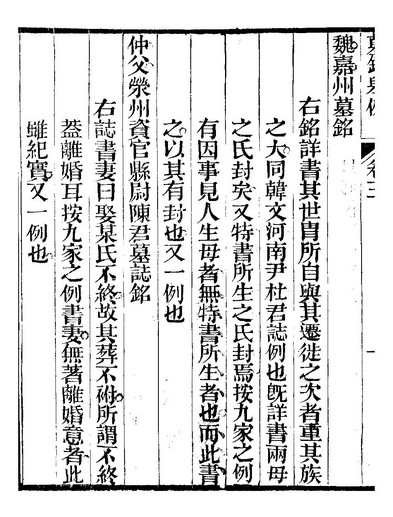 魏嘉州墓銘
右銘詳書其世胄所自與其遷徙之次者重其族
之大同韓文河南尹杜君誌例也旣詳書兩母
之氏封矣又特書所生之氏封焉按九家之例
有因事見人生母者無特書所生者也而此書
之以其有封也又一例也
仲父榮州資官縣尉陳君墓誌銘
右誌書妻曰娶某氏不終故其葬不祔所謂不終
蓋離婚耳按九家之例書妻無著離婚意者此
雖紀實又一例也